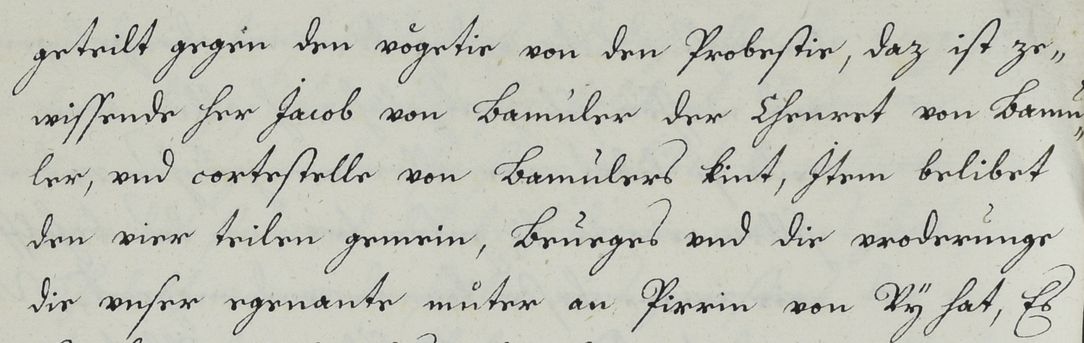 geteilt gegen den vögetie von den Probestie, daz ist ze„
wissende her Jacob von Bamuler der Chenret von Bamu„
ler, vnd cortestelle von Bamulers kint, Item belibet
den vier teilen gemein, Beurges vnd die vroderunge
die vnser egenante můter an Pirrin von Rÿ hat, Es